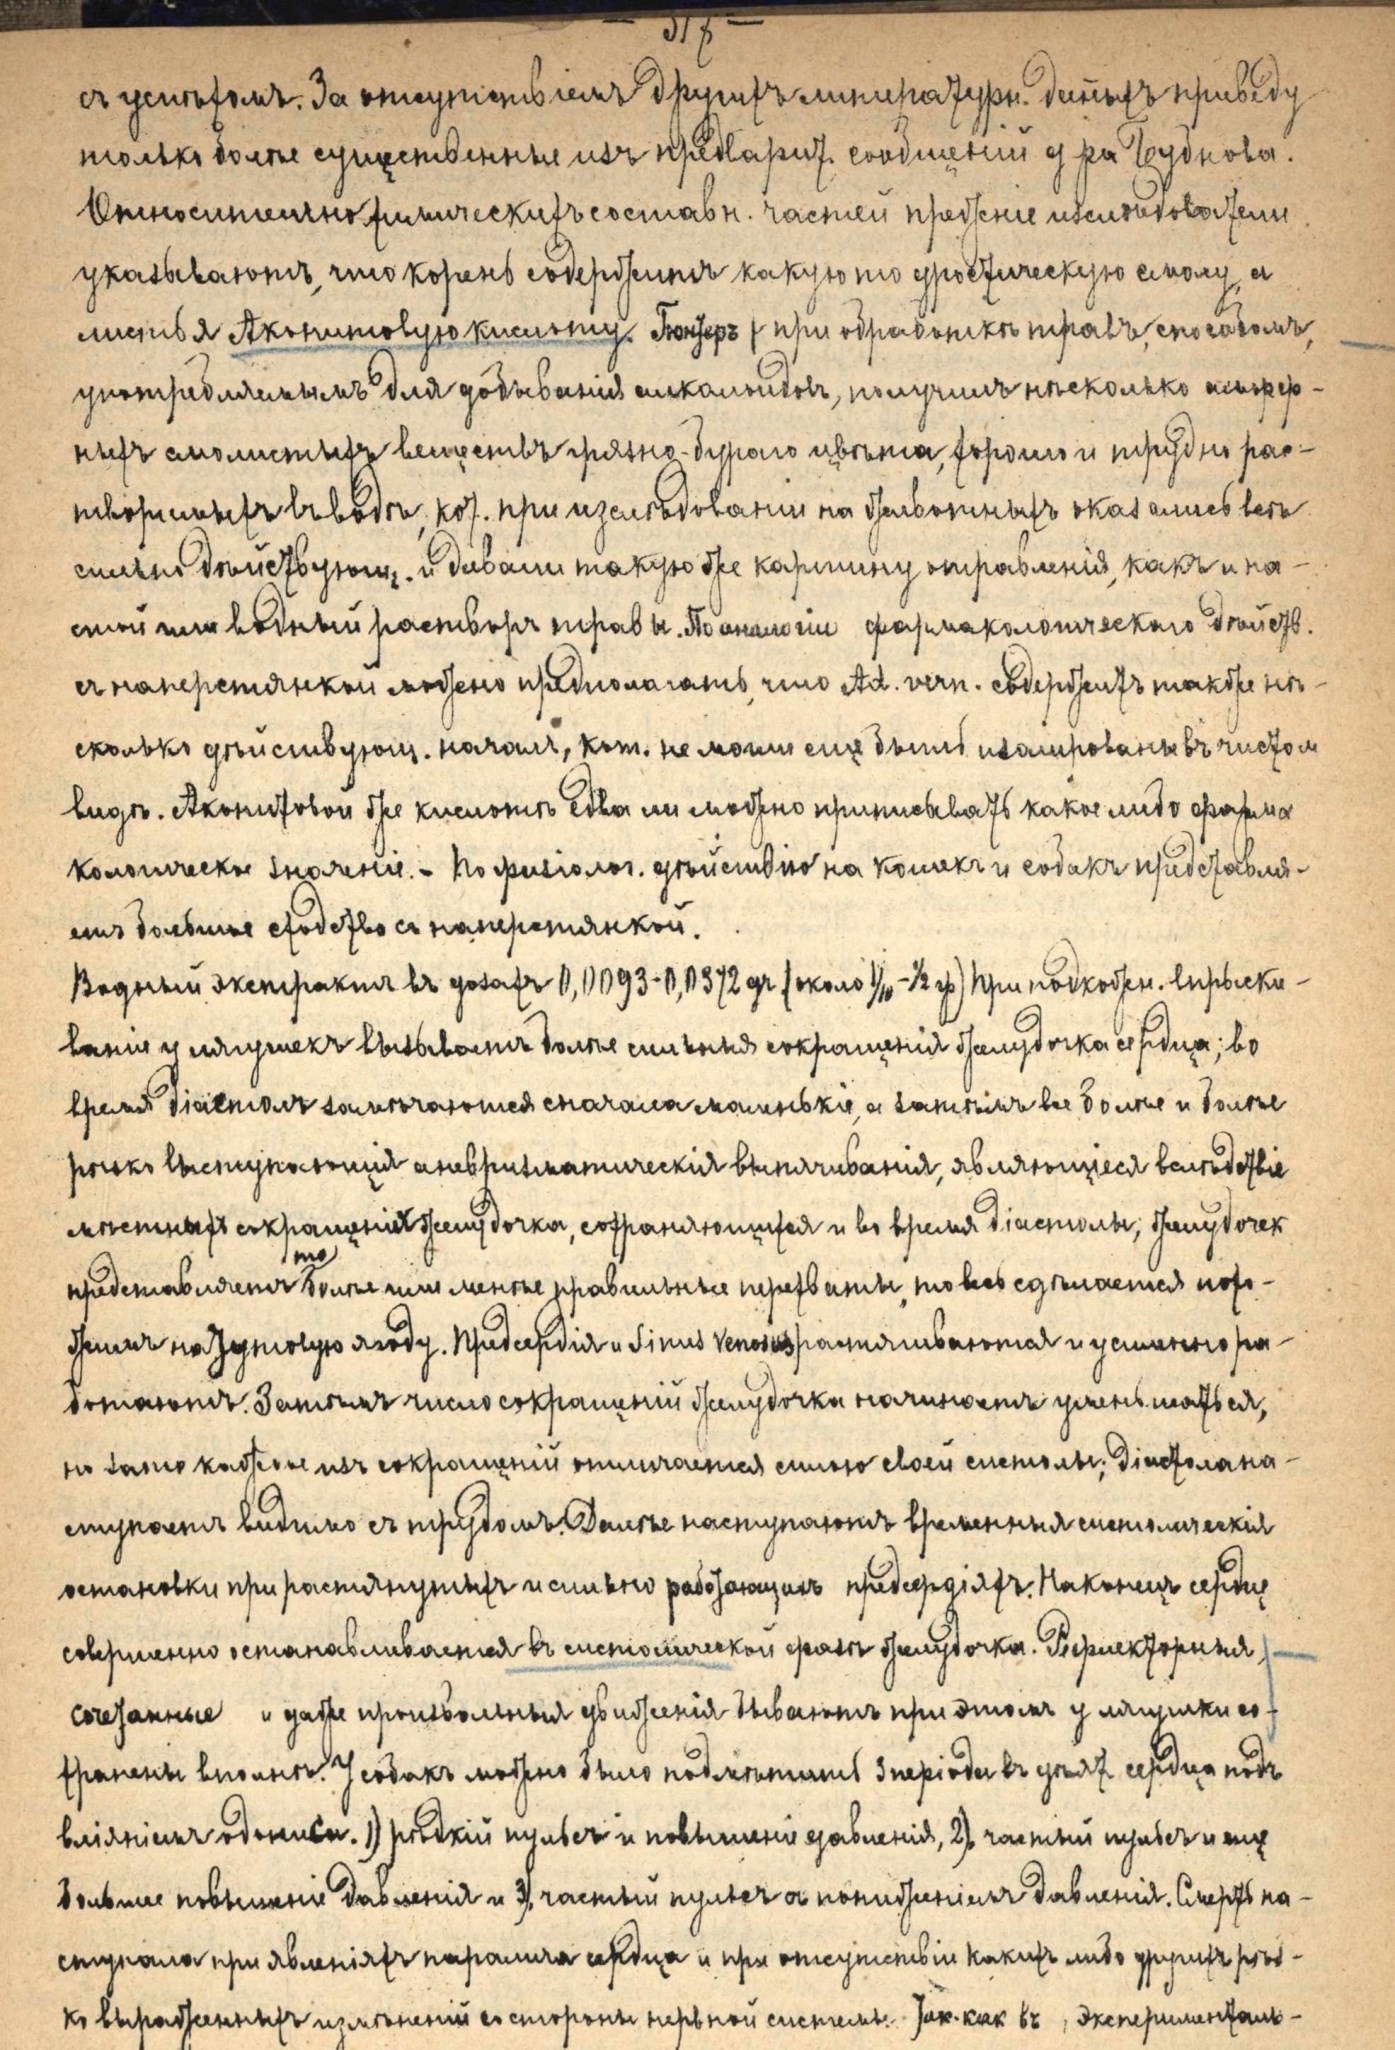 — 317 —
съ успѣхомъ. За отсутствіемъ другихъ литературн. данныхъ приведу
только болѣе существенные изъ предварит. сообщеній д ра Бубнова.
Относительно химическихъ составн. частей прежніе изслѣдователи
указываютъ, что корень содержитъ какую то дростическую смолу, а
листья Аконитовую кислоту. При обработкѣ травъ, способомъ,
употребляемымъ для добыванія алкалоидовъ, получилъ нѣсколько аморф-
ныхъ смолистыхъ веществъ грязно-бураго цвѣта, хорошо и трудно рас-
творимыхъ въ водѣ, кот. при изслѣдованіи на животныхъ оказались всѣ
сильно дѣйствующ. и давали такую же картину отравленія, какъ и на-
стой или водный растворъ травы. По аналогіи фармакологическаго дѣйств.
съ наперстянкой можно предполагать, что Ad. vern. содержитъ также нѣ-
сколько дѣйствующ. началъ, кот. не могли еще быть изолированы въ чистом
видѣ. Аконитовой же кислотѣ едва ли можно приписывать какое либо фарма
кологическое значеніе. - По физіолог. дѣйствію на кошекъ и собакъ представля-
етъ большое сходство съ наперстянкой.
Водный экстрактъ въ дозахъ 0,0093-0,0372 гр. (около 1/10 - 1/2 гр) при подкожн. впрыски-
ваніе у лягушекъ вызываетъ болѣе сильныя сокращенія желудочка сердца; во
время діастолъ замѣчаются сначала маленькіе, а затѣмъ все болѣе и болѣе
рѣзко выступающія аневризматическія выпячиванія, являющіеся вслѣдствіе
мѣстныхъ сокращеній желудочка, сохраняющихся и во время діастолы; желудочек
представляетъ то болѣе или менѣе правильные перехваты, то весь сдѣлается похо-
жимъ на тутовую ягоду. Предсердія и Sinus Venosus растягиваются и усиленно ра-
ботаютъ. Затѣмъ число сокращеній желудочка начинаетъ уменьшаться,
но зато каждое изъ сокращеній отличается силою своей систолы; діастола на-
ступаетъ видимо съ трудомъ. Далѣе наступаютъ временныя систолическія
остановки при растянутыхъ и сильно работающихъ предсердіяхъ. Наконецъ сердце
совершенно останавливается въ систолической фазѣ желудочка. Рефлекторныя,
сочетанные и даже произвольныя движенія бываютъ при этомъ у лягушки со-
хранены вполнѣ. У собакъ можно было подмѣтить 3 періода въ дѣят. сердца подъ
вліяніемъ адониса. 1) рѣдкій пульсъ и повышеніе давленія, 2) частый пульсъ и еще
большее повышеніе давленія и 3) частый пульсъ съ пониженіемъ давленія. Смерть на-
ступала при явленіяхъ паралича сердца и при отсутствіи какихъ либо другихъ рѣз-
ко выраженныхъ измѣненій со стороны нервной системы. Так. как въ экспериментал-